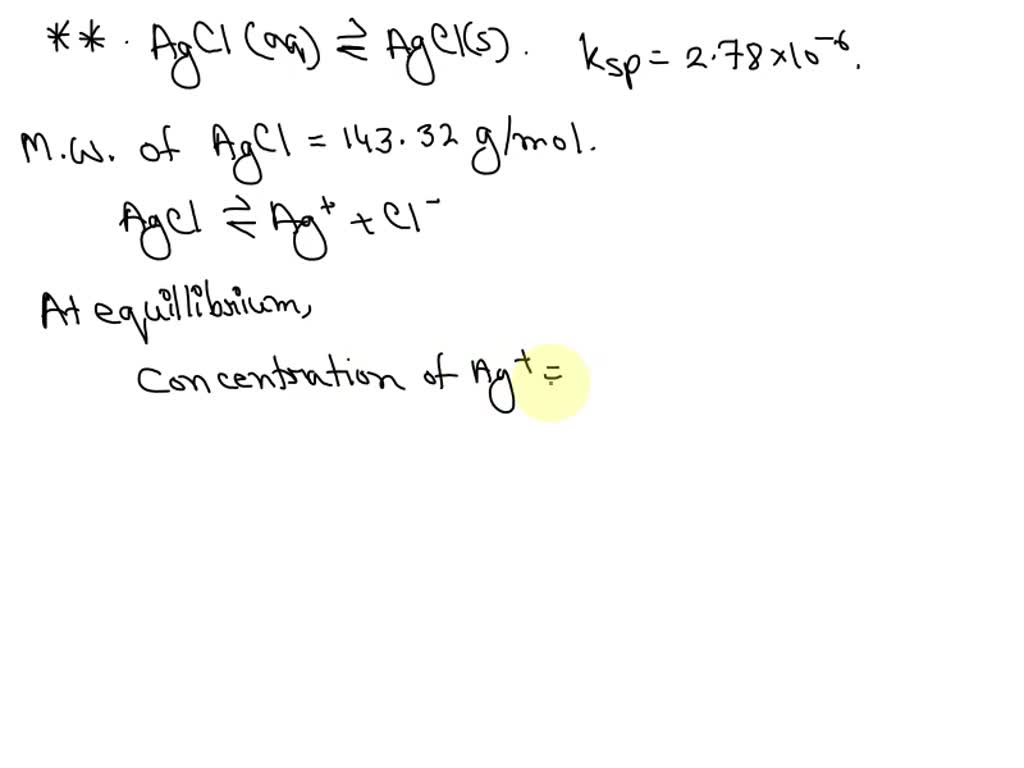 ** . AgCl (aq) ⇌ AgCl(s) . Ksp = 2.78×10⁻⁶.
M.W. of AgCl = 143.32 g/mol.
AgCl ⇌ Ag⁺ + Cl⁻
At equillibrium,
Concentration of Ag⁺ =